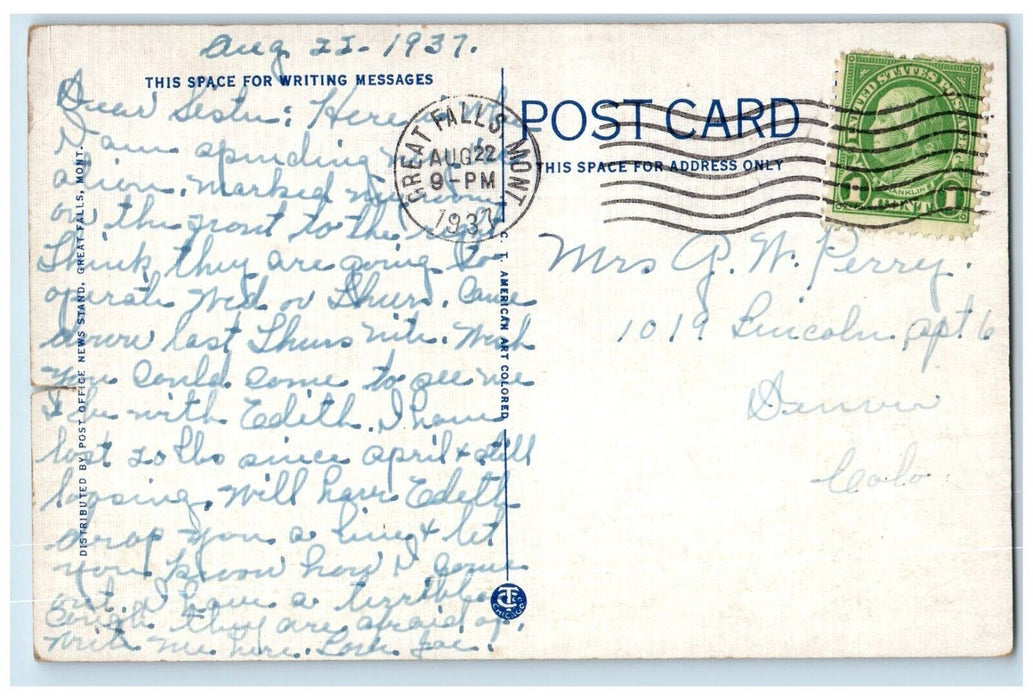 Aug 22 - 1937.
THIS SPACE FOR WRITING MESSAGES
Dear Sister: Here is where
I am spending my vac
ation. Marked my room
on the front to the right
Think they are going to
operate Wed or Thurs. Came
down last Thurs nite. Wish
you could come to see me
& be with Edith. I have
lost 20 lbs since april & still
loosing, Will have Edith
drop you a line & let
you know how I come
out. I have a terrible
Cough they are afraid of.
Write me here. Love
DISTRIBUTED BY POST OFFICE NEWS STAND, GREAT FALLS, MONT.
C. T. AMERICAN ART COLORED
CHICAGO
GREAT FALLS MONT
AUG 22
9-PM
1937
POST CARD
THIS SPACE FOR ADDRESS ONLY
UNITED STATES POSTAGE
FRANKLIN
1 CENT 1
Mrs G. W. Perry.
1019 Lincoln apt 6
Denver
Colo